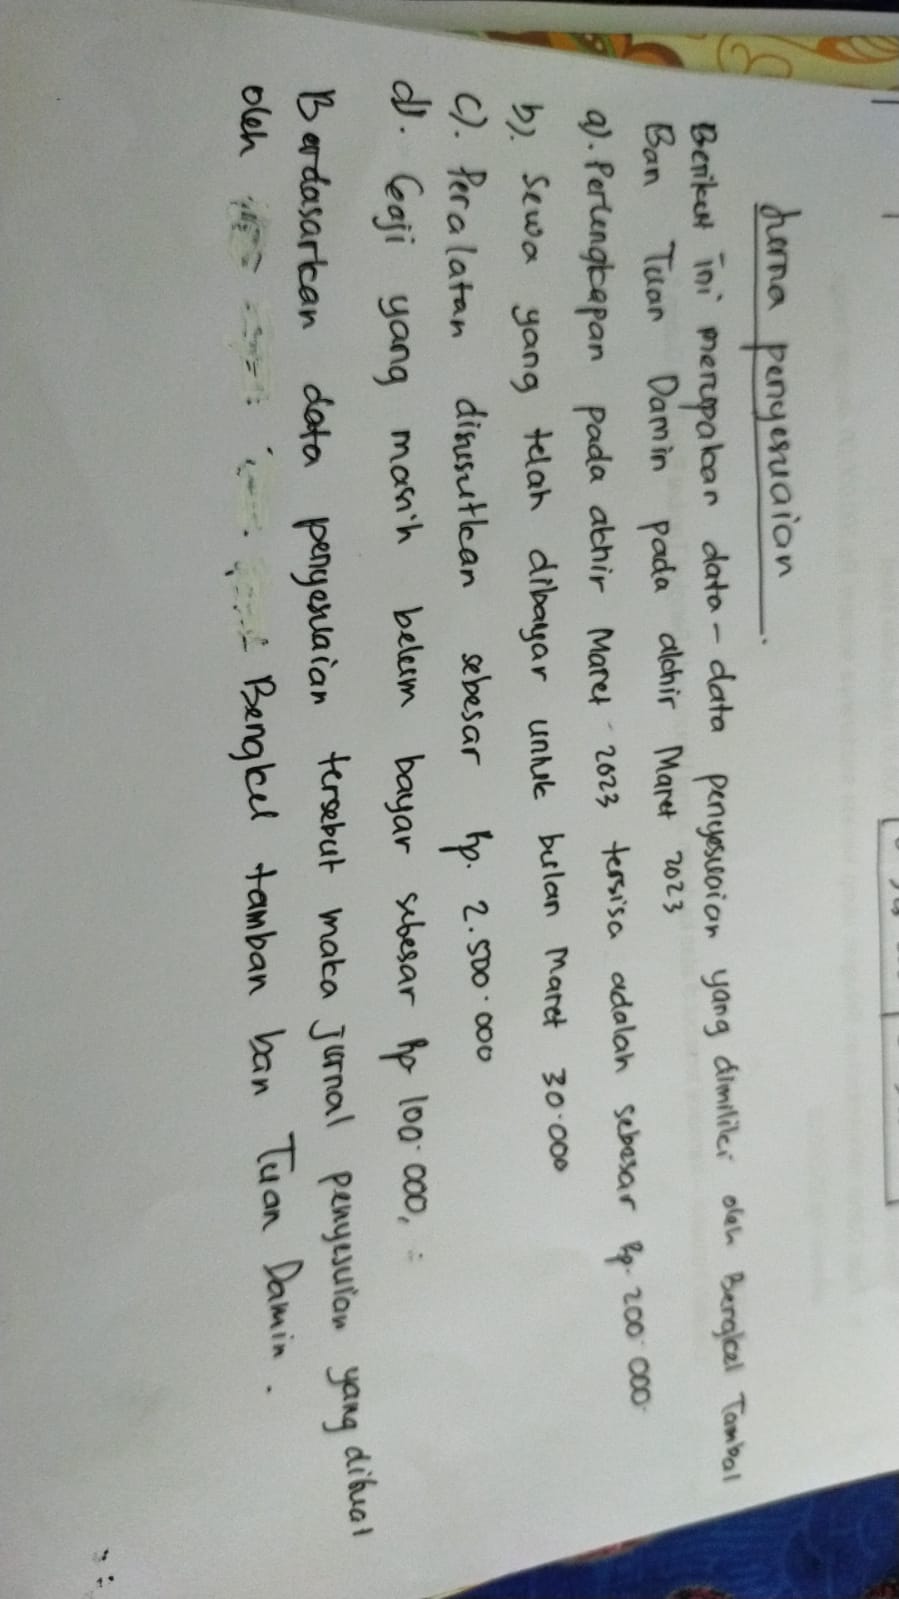 Jurnal penyesuaian
Berikut ini merupakan data-data penyesuaian yang dimiliki oleh Bengkel Tambal
Ban Tuan Damin pada akhir Maret 2023
a). Perlengkapan pada akhir Maret 2023 tersisa adalah sebesar Rp. 200.000.
b). Sewa yang telah dibayar untuk bulan Maret 30.000
c). Peralatan disusutkan sebesar Rp. 2.500.000
d). Gaji yang masih belum bayar sebesar Rp 100.000,
Berdasarkan data penyesuaian tersebut maka jurnal penyesuian yang dibuat
oleh Bengkel tamban ban Tuan Damin.